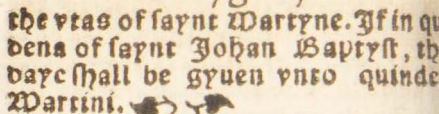 the vtas of saynt Martyne. If in qu
dena of saynt Johan Baptyst, th
daye shall be gyuen vnto quinde
Martini.